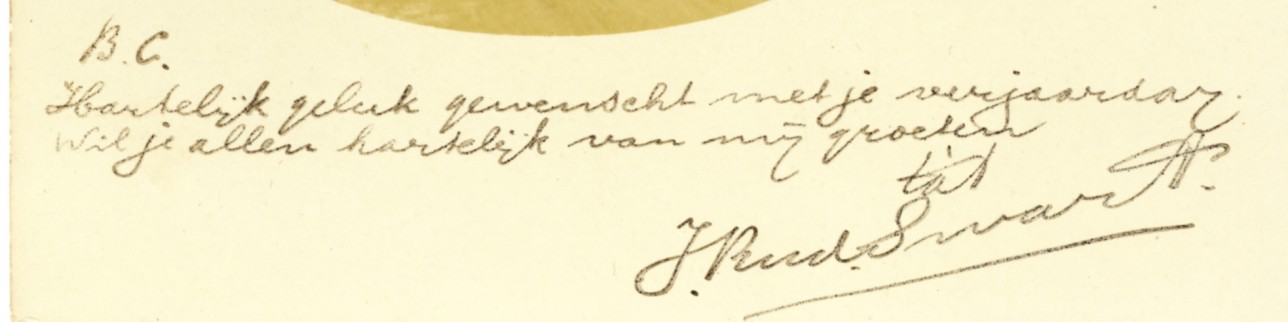 B.C.
Hartelijk geluk gewenscht met je verjaardag.
Wil je allen hartelijk van mij groeten
J. Rud. Swart